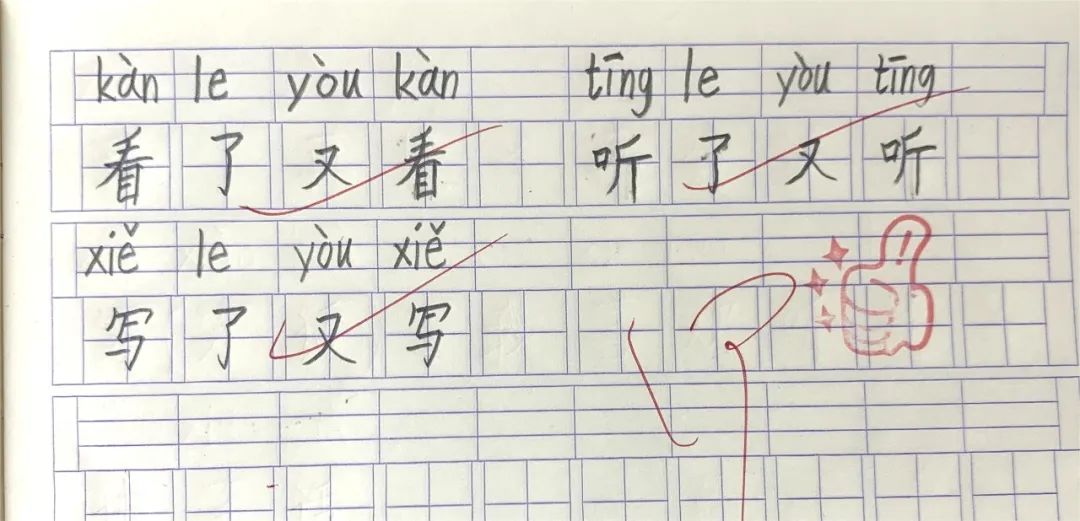 kàn le yòu kàn tīng le yòu tīng
看了又看 听了又听
xiě le yòu xiě
写了又写